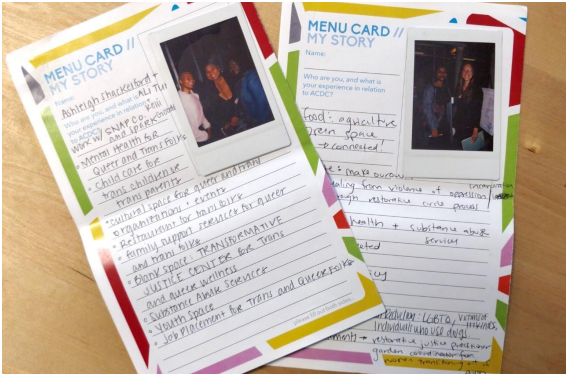 MENU CARD //
MY STORY
Name:
Ashleigh Shackelford +
Who are you, and what is
your experience in relation
to ACDC?
work w/ SNAPCO
and spark
• Mental Health for
Queer and Trans folks
• child care for
trans children or
trans parents
• cultural space for queer and trans
organizations + events
• Restaurant for trans folks
• family support services for queer
and trans folks
• Blank space: TRANSFORMATIVE
JUSTICE CENTER for Trans
and queer wellness
• Substance Abuse Services
• Youth Space
• Job Placement for Trans and Queer Folks
please fill out both sides...
MENU CARD //
MY STORY
Name:
Who are you, and what is
your experience in relation
to ACDC?
food: agriculture
green space
→ connected
make
healing from violence of oppression
through restorative circle
health + substance abuse
services
LGBTQ, victims
individuals who use drugs
→ restorative justice
garden coordinator